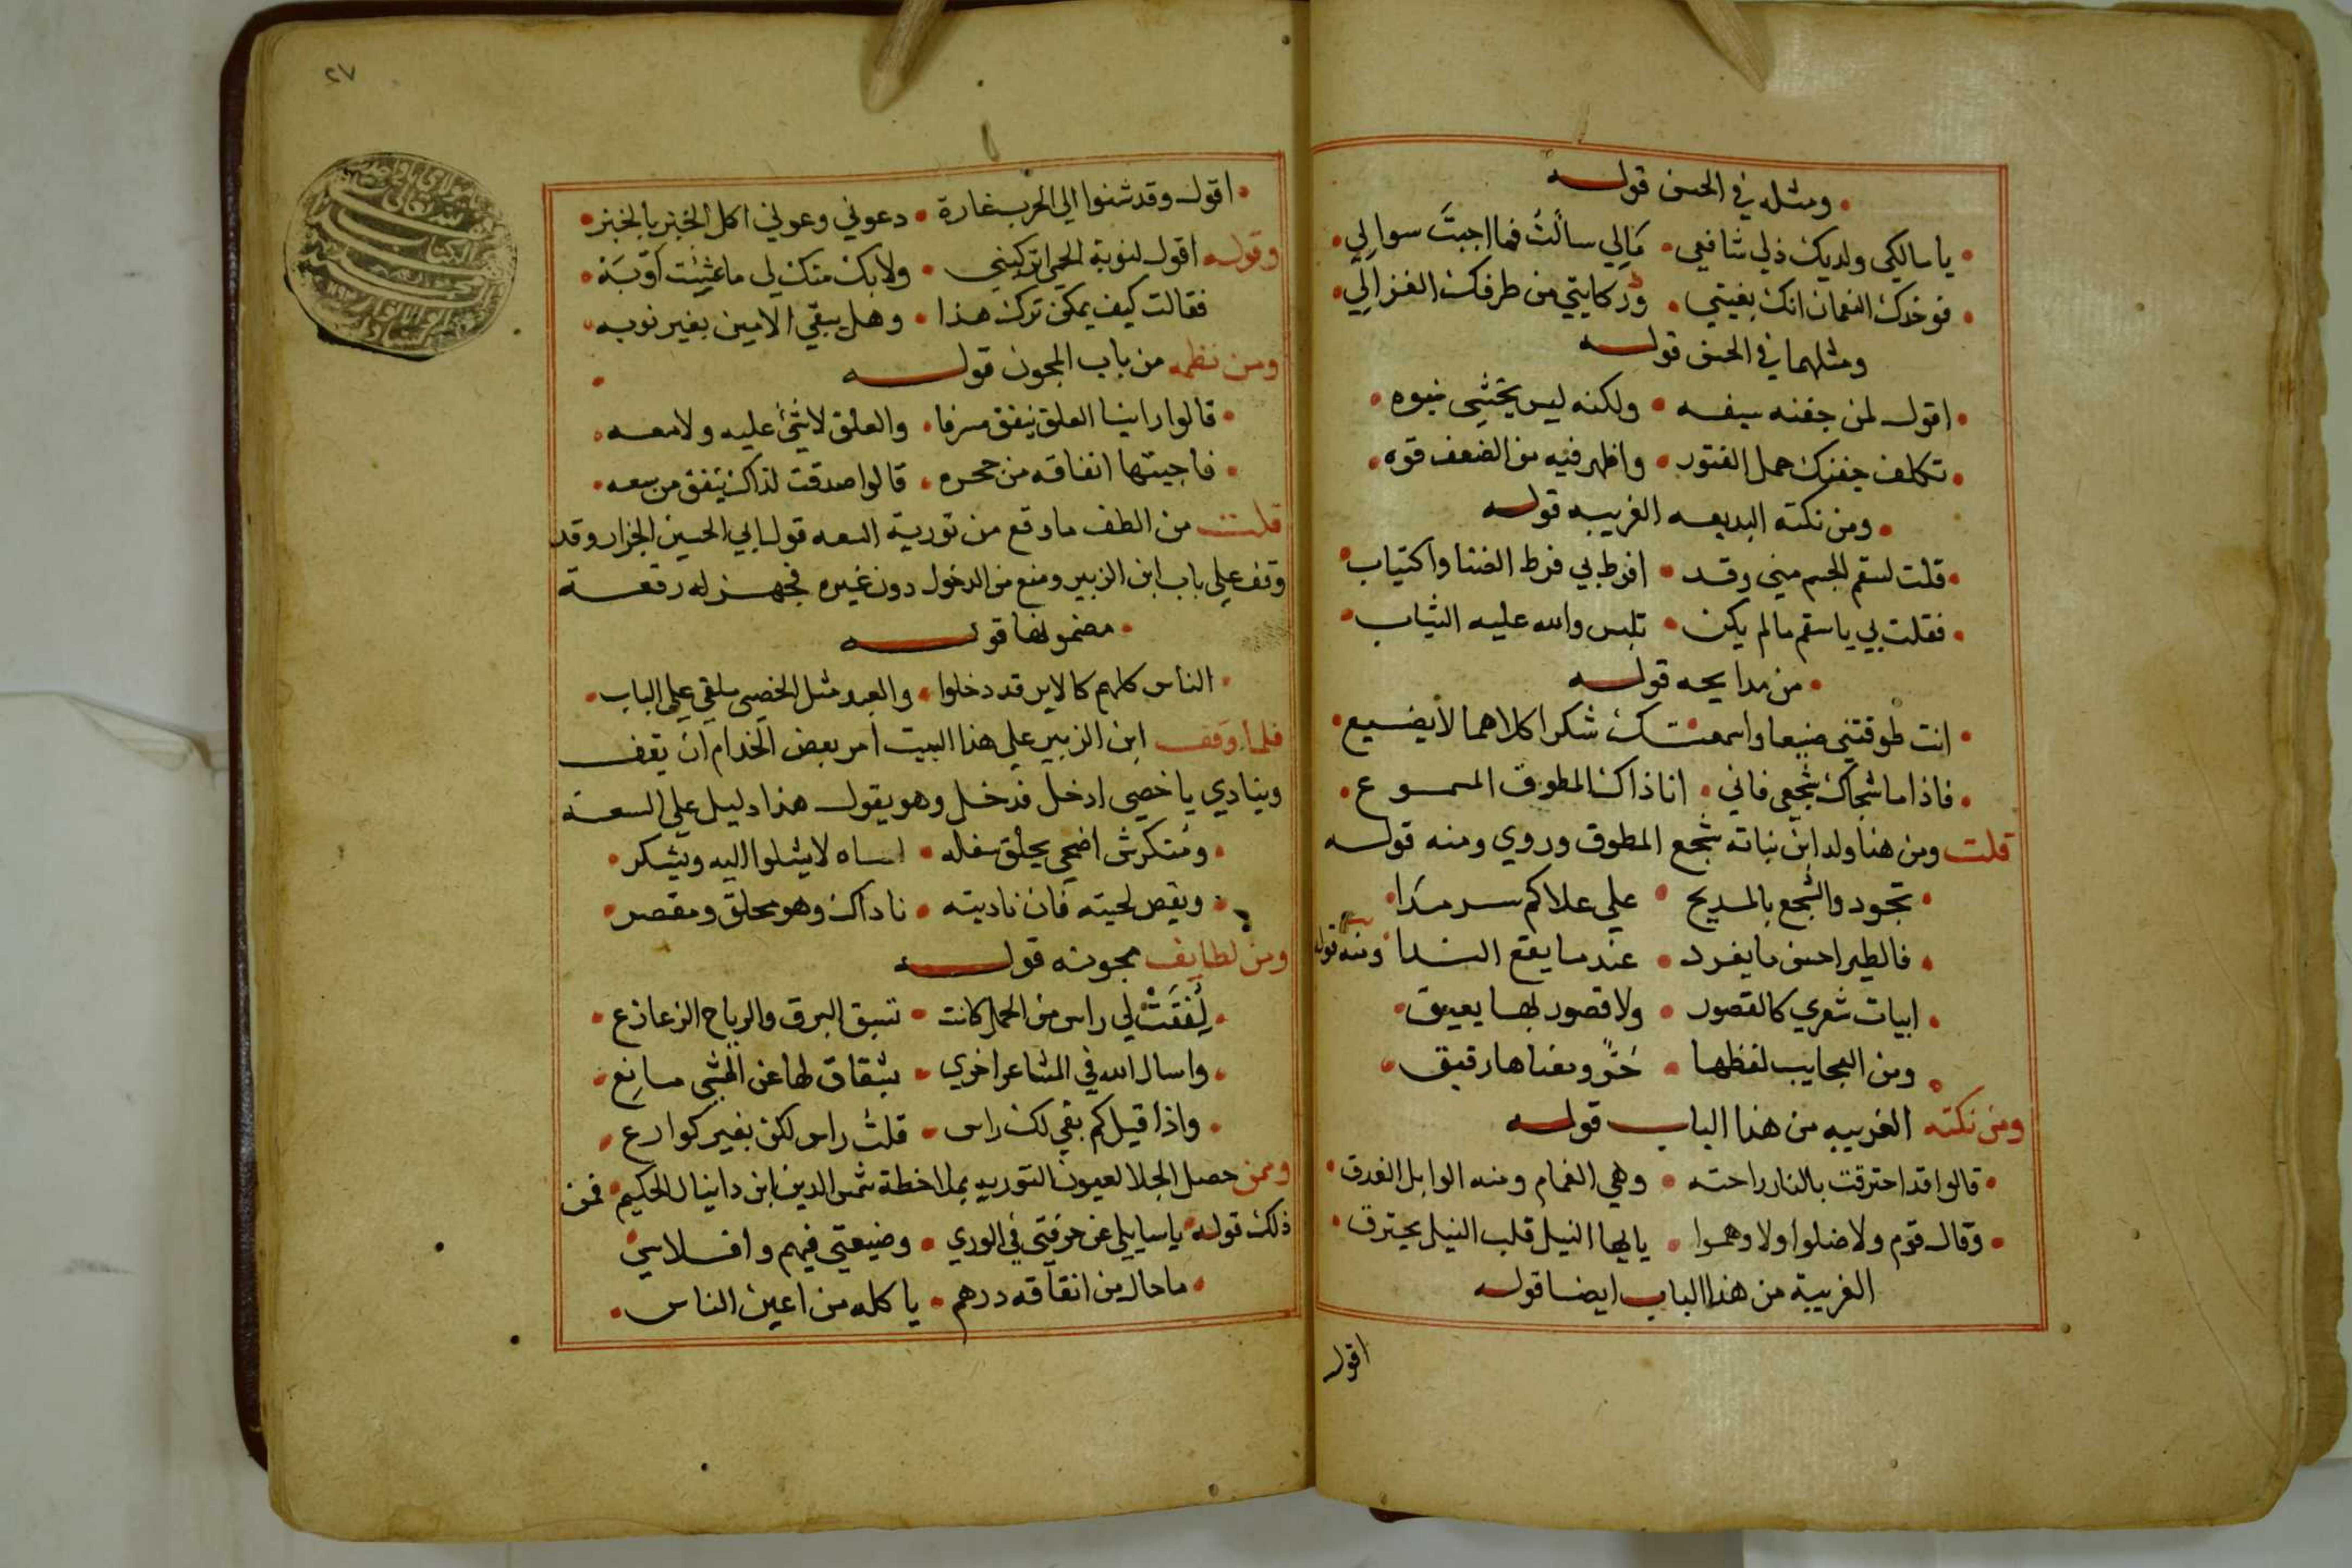 ومثله في الحسن قوله
يا سالكي ولديك ذلي شافعي • مالي سألت فما اجبت سوالي
فوخدك النعمان انك بغيتي • وشكايتي من طرفك الغزالي
ومثلهما في الحسن قوله
اقول لمن جفنه سيفه • ولكنه ليس يخشى نبوه
تكلف جفنك حمل الفتور • واظهر فيه من الضعف قوه
ومن نكته البديعه الغريبه قوله
قلت لسقم الجسم مني وقد • افرط بي فرط الضنا واكتياب
فقلت بي يا سقم مالم يكن • تلبس والله عليه الثياب
من مدايحه قوله
انت طوقتني صنيعا واسمعتك شكرا كلاهما لا يضيع
فاذا ما شجاك شجعي فاني • انا ذاك المطوق المسموع
قلت ومن هنا ولد ابن نباته شجع المطوق وروي ومنه قوله
تجود والشجع بالمديح • علي علاكم سرمدا
فالطير احسن ما يغرد • عند ما يقع الندا ومنه قوله
ابيات شعري كالقصور • ولا قصور بها يعيق
ومن العجايب لفظها • حر ومعناها رقيق
ومن نكته الغريبه من هذا الباب قوله
قالوا قد احترقت بالنار راحته • وهي الغمام ومنه الوابل الغدق
وقال قوم ولا ضلوا ولا وهموا • يا لها النيل قلب النيل يحترق
الغريبة من هذا الباب ايضا قوله
اقول
٢٧
اقول وقد شنوا الي الحرب غارة • دعوني وعوني اكل الخبز بالخبز
وقوله اقول لنوبة الحمي اتركيني • ولا بك منك لي ما عشت اوبة
فقالت كيف يمكن ترك هذا • وهل يبقي الامير بغير نوبه
ومن نظمه من باب المجون قوله
قالوا راينا العلق ينفق مسرفا • والعلق لا شئ عليه ولا معه
فاجيتها انفاقه من جحره • قالوا صدقت لذاك ينفق من سعه
قلت من الطف ما وقع من تورية السعه قول ابي الحسين الجزار وقد
وقف علي باب ابن الزبير ومنع من الدخول دون غيره فجهز له رقعة
مضمونها قوله
الناس كلهم كالاير قد دخلوا • والعبد مثل الخصى ملقي علي الباب
فلما وقف ابن الزبير علي هذا البيت امر بعض الخدام ان يقف
وينادي يا خصي ادخل فدخل وهو يقول هذا دليل علي السعة
ومتكرش اضحي يحلق سفله • اساه لا يشلوا اليه ويشكر
ويقص لحيته فان ناديته • ناداك وهو محلق ومقصر
ومن لطايف مجونه قوله
نفقت لي راس من الخيل كانت • تسبق البرق والرياح الزعازع
واسال الله في المشاعر اخري • شقاق لها عن المشي مانع
واذا قيل كم بقي لك راس • قلت راس لكن بغير كوارع
وممن حصل الجلا لعيون التوريه بملاحظة شمس الدين ابن دانيال الحكيم • فمن
ذلك قوله يا سايلي عن حرفتي في الوري • وضيعتي فيهم وافلاسي
ما حال من انفاقه درهم • ياكله من اعين الناس